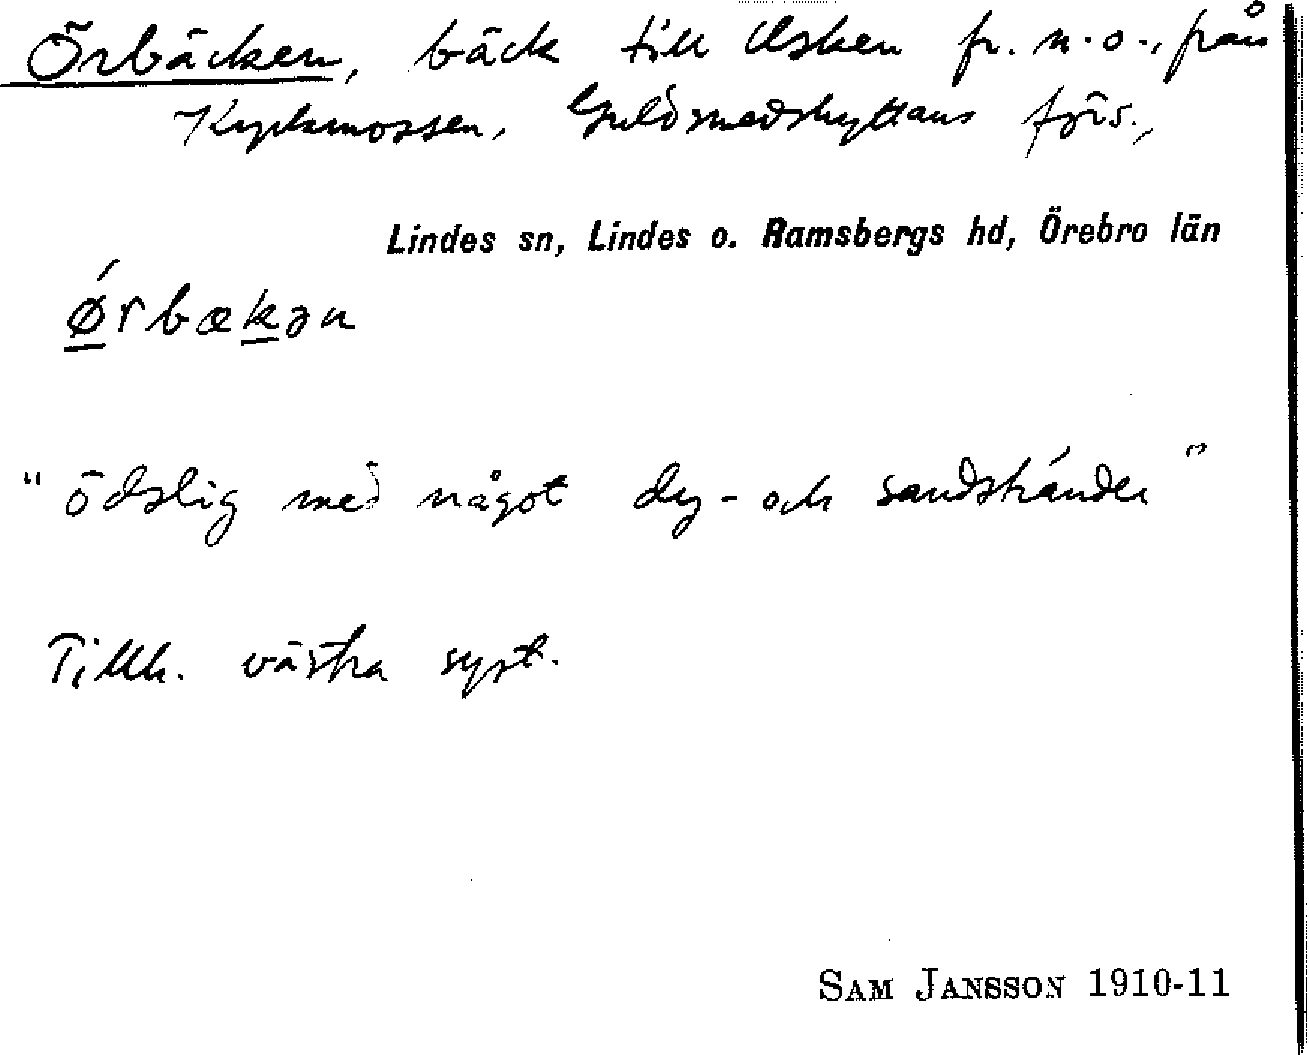 Örbäcken, bäck till Usken fr. n.o., från
Kyrkmossen, Guldsmedshyttans förs.,
Lindes sn, Lindes o. Ramsbergs hd, Örebro län
ǿrbækən
"ödslig med något dy- och sandstränder"
Tillh. västra syst.
SAM JANSSON 1910-11